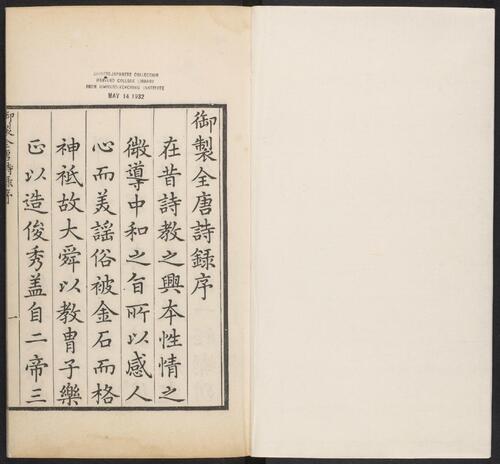 CHINESE-JAPANESE COLLECTION
HARVARD COLLEGE LIBRARY
FROM HARVARD-YENCHING INSTITUTE
MAY 14 1932
御製全唐詩録序
在昔詩教之興本性情之
微導中和之旨所以感人
心而美謡俗被金石而格
神祗故大舜以教胄子樂
正以造俊秀盖自二帝三
御製全唐詩録序
一